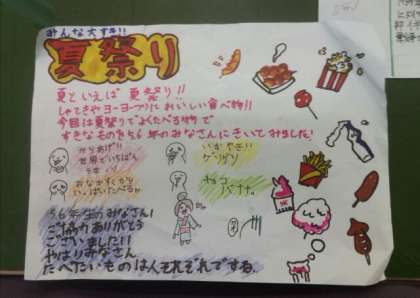 みんな大すき!!
夏祭り
夏といえば 夏祭り!!
しゃてきやヨーヨーつりにおいしい食べ物!!
今回は夏祭りでよくたべる物で
すきなものを5,6年のみなさんにきいてみました!
からあげ!!
世界でいちばん
おなかすくから
いっぱいたべる
いかやき!!
ゲソゲソ
チョコ
バナナ
5,6年生のみなさん!
ご協力ありがとう
ございました!!
やはりみなさん
たべたいものは人それぞれですね。